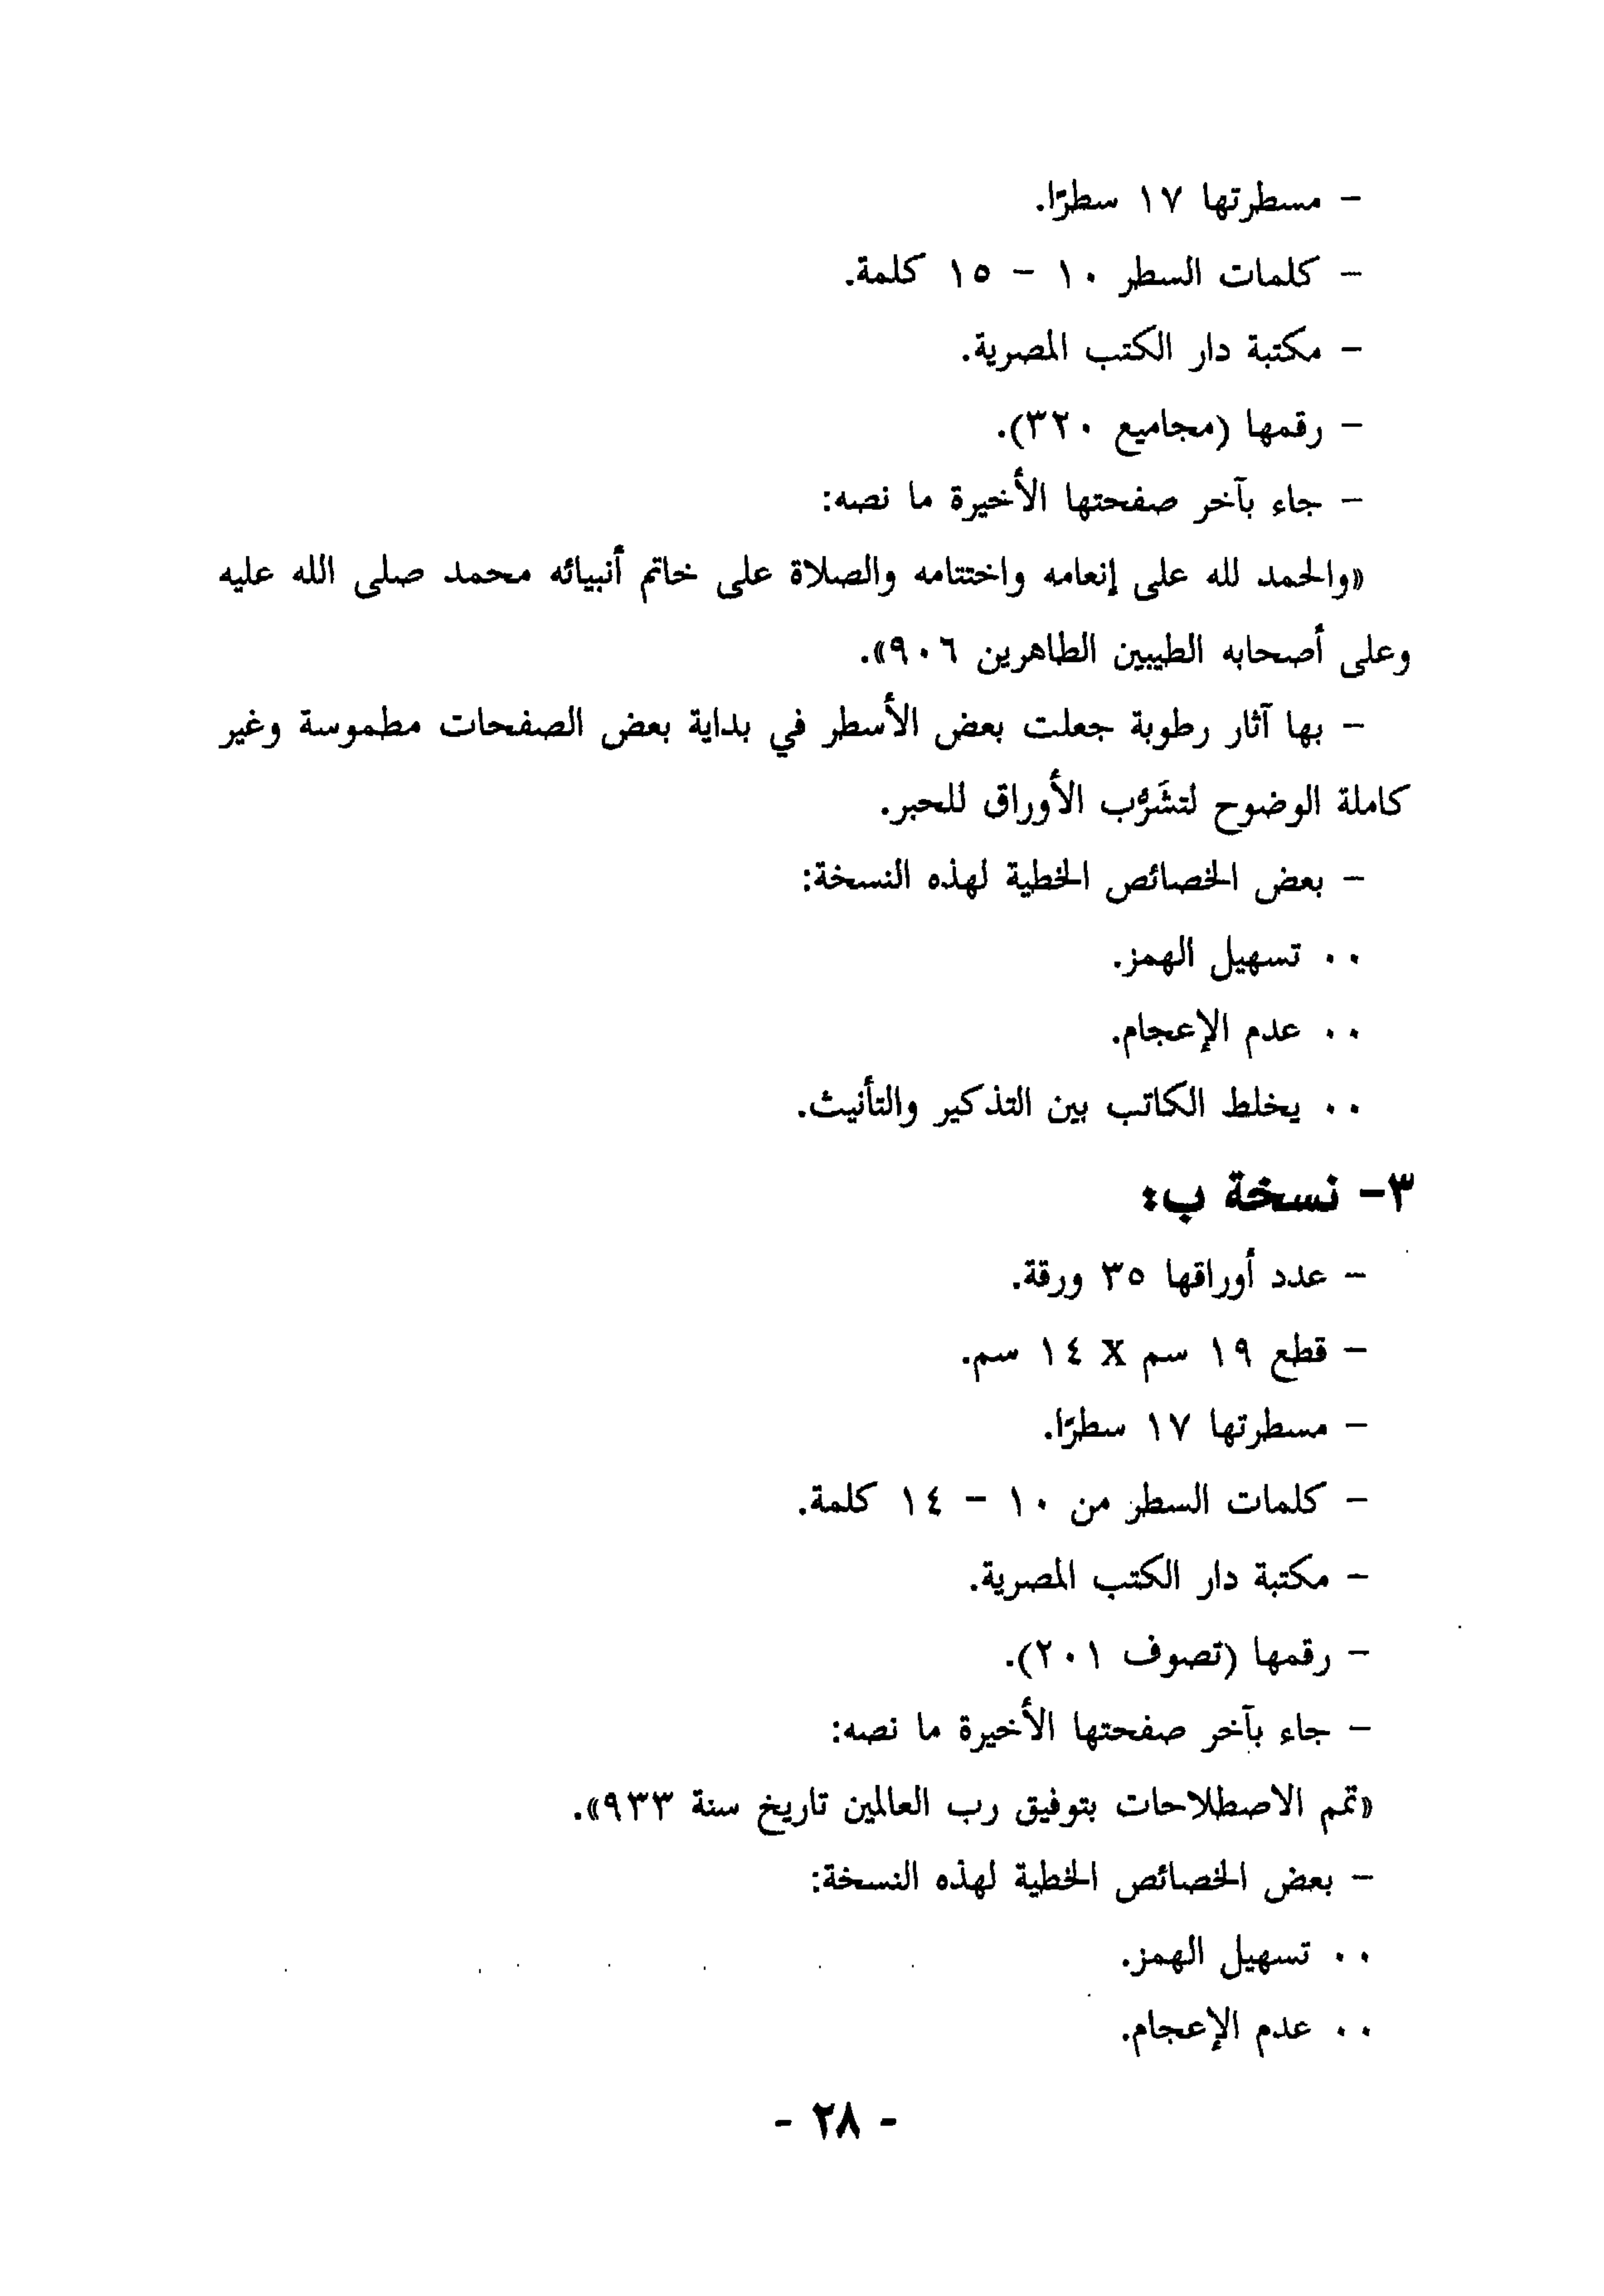 - مسطرتها ١٧ سطرًا.
- كلمات السطر ١٠ - ١٥ كلمة.
- مكتبة دار الكتب المصرية.
- رقمها (مجاميع ٣٢٠).
- جاء بآخر صفحتها الأخيرة ما نصه:
«والحمد لله على إنعامه واختتامه والصلاة على خاتم أنبيائه محمد صلى الله عليه
وعلى أصحابه الطيبين الطاهرين ٩٠٦».
- بها آثار رطوبة جعلت بعض الأسطر في بداية بعض الصفحات مطموسة وغير
كاملة الوضوح لتشَرُّب الأوراق للحبر.
- بعض الخصائص الخطية لهذه النسخة:
.. تسهيل الهمز.
.. عدم الإعجام.
.. يخلط الكاتب بين التذكير والتأنيث.
٣- نسخة ب:
- عدد أوراقها ٣٥ ورقة.
- قطع ١٩ سم X ١٤ سم.
- مسطرتها ١٧ سطرًا.
- كلمات السطر من ١٠ - ١٤ كلمة.
- مكتبة دار الكتب المصرية.
- رقمها (تصوف ٢٠١).
- جاء بآخر صفحتها الأخيرة ما نصه:
«تمم الاصطلاحات بتوفيق رب العالمين تاريخ سنة ٩٣٣».
- بعض الخصائص الخطية لهذه النسخة:
.. تسهيل الهمز.
.. عدم الإعجام.
- ٢٨ -